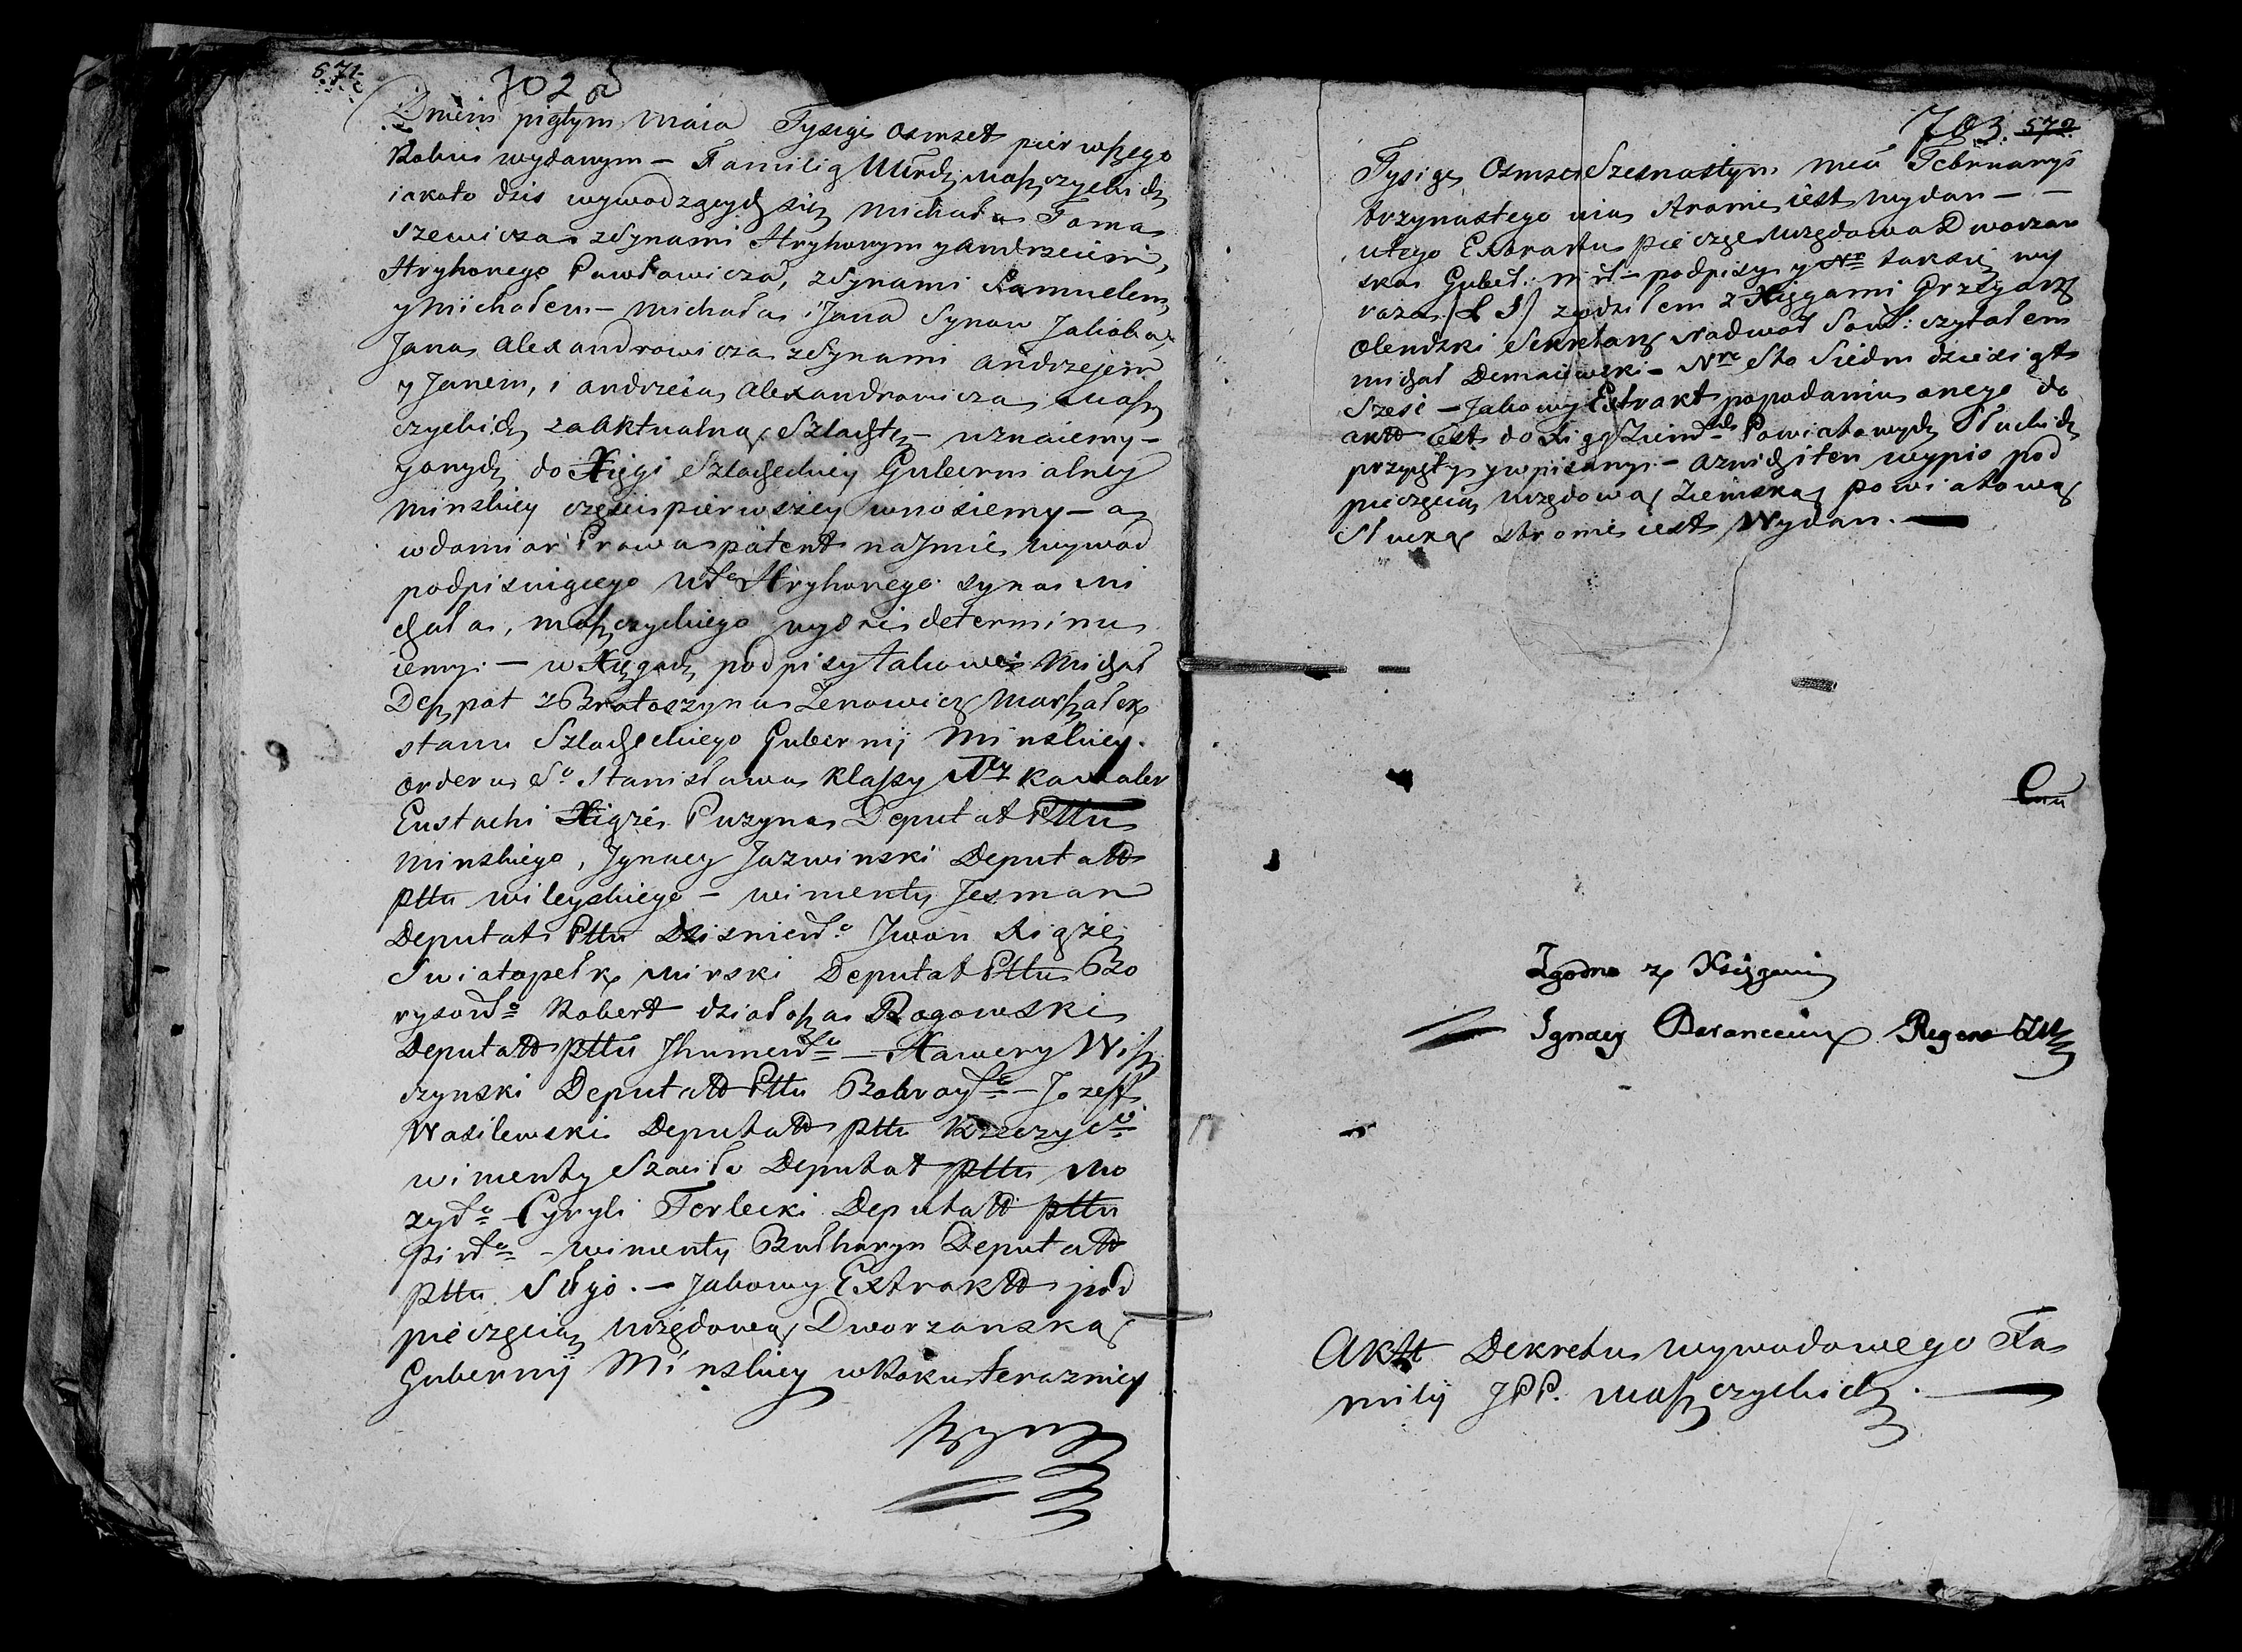 671
702
Dniem piątym Maia Tysiąc osmset pierwszego
Roku wydanym – Familią Urdz Maszczyckich
iakoto dziś wywodzących się Michała Toma
szewicza zsynami Hryhorym y Andrzeiem,
Hryhorego Pawłowicza, zsynami Samuelem
y Michałem – Michała i Jana Synow Jakoba
Jana Alexandrowicza zsynami Andrzejem
y Janem, i Andrzeia Alexandrowicza Masz
czyckich za Aktualną Szlachtę – uznaiemy –
y onych do Xięgi Szlacheckiey Gubernialney
Minskiey części pierwszey wnosiemy – a
wdomiar Prawa patent na Jmie wywod
podpisuiącego Urdo Hryhorego syna Mi
chała, Maszczyckiego wydać determinu
iemy. – w Xięgach podpisy takowe Michał
Deszpot z Bratoszyna Zenowicz Marszałek
stanu Szlacheckiego Gubernij Minskiey.
orderu So Stanisława klassy Kawaler
Eustachi Xiąże Puzyna Deputat Pttu
Minskiego, Jgnacy Jazwinski Deputatt
pttu wileyskiego – wincenty Jesman
Deputat Pttu Dzisnieńo Jwan Xiąże
Swiatopełk Mirski Deputat Pttu Bo
rysowo Robert działosza Rogowski
Deputatt pttu Jhumeno – Xawery Wisz
czynski Deputatt Pttu Bobroyo – Jozeff
Wasilewski Deputatt pttu Rzeczyco
wincenty Szaciło Deputat pttu Mo
zyro – Cyryli Terlecki Deputatt pttu
pińo – wincenty Bułharyn Deputatt
pttu Słgo. – Jakowy Extraktt pod
pieczęcią urzędową Dworzanską
Gubernij Minskiey w Roku terazniey
szym
703. 572
Tysiąc Osmset Szesnastym mca Februarys
trzynastego dnia stronie iest wydan – –
utego Extraktu pieczęć urzędowa Dworzan
ska Gubeł: Mił – podpisy y No tak się wy
raza (L S) zgodziłem z Xięgami Grzegorz
Olendzki Sekretarz Nadwor Sow: czytałem
Michał Demaiewski – Nro Sto Siedm dziesiąt
Szesć – Jakowy Extrakt popodaniu onego do
aktt iest do Xiąg Ziem Powiatowych Słuckich
przyięty y wpisany – a zwich i ten wypis pod
pieczęcią urzędową Ziemską powiatową
Słucką stronie iest Wydan. –
Zgodno z Xięgami
Ignacy Barancewicz Regent
Aktt Dekretu wywodowego Fa
milij JPP. Maszczyckich. –